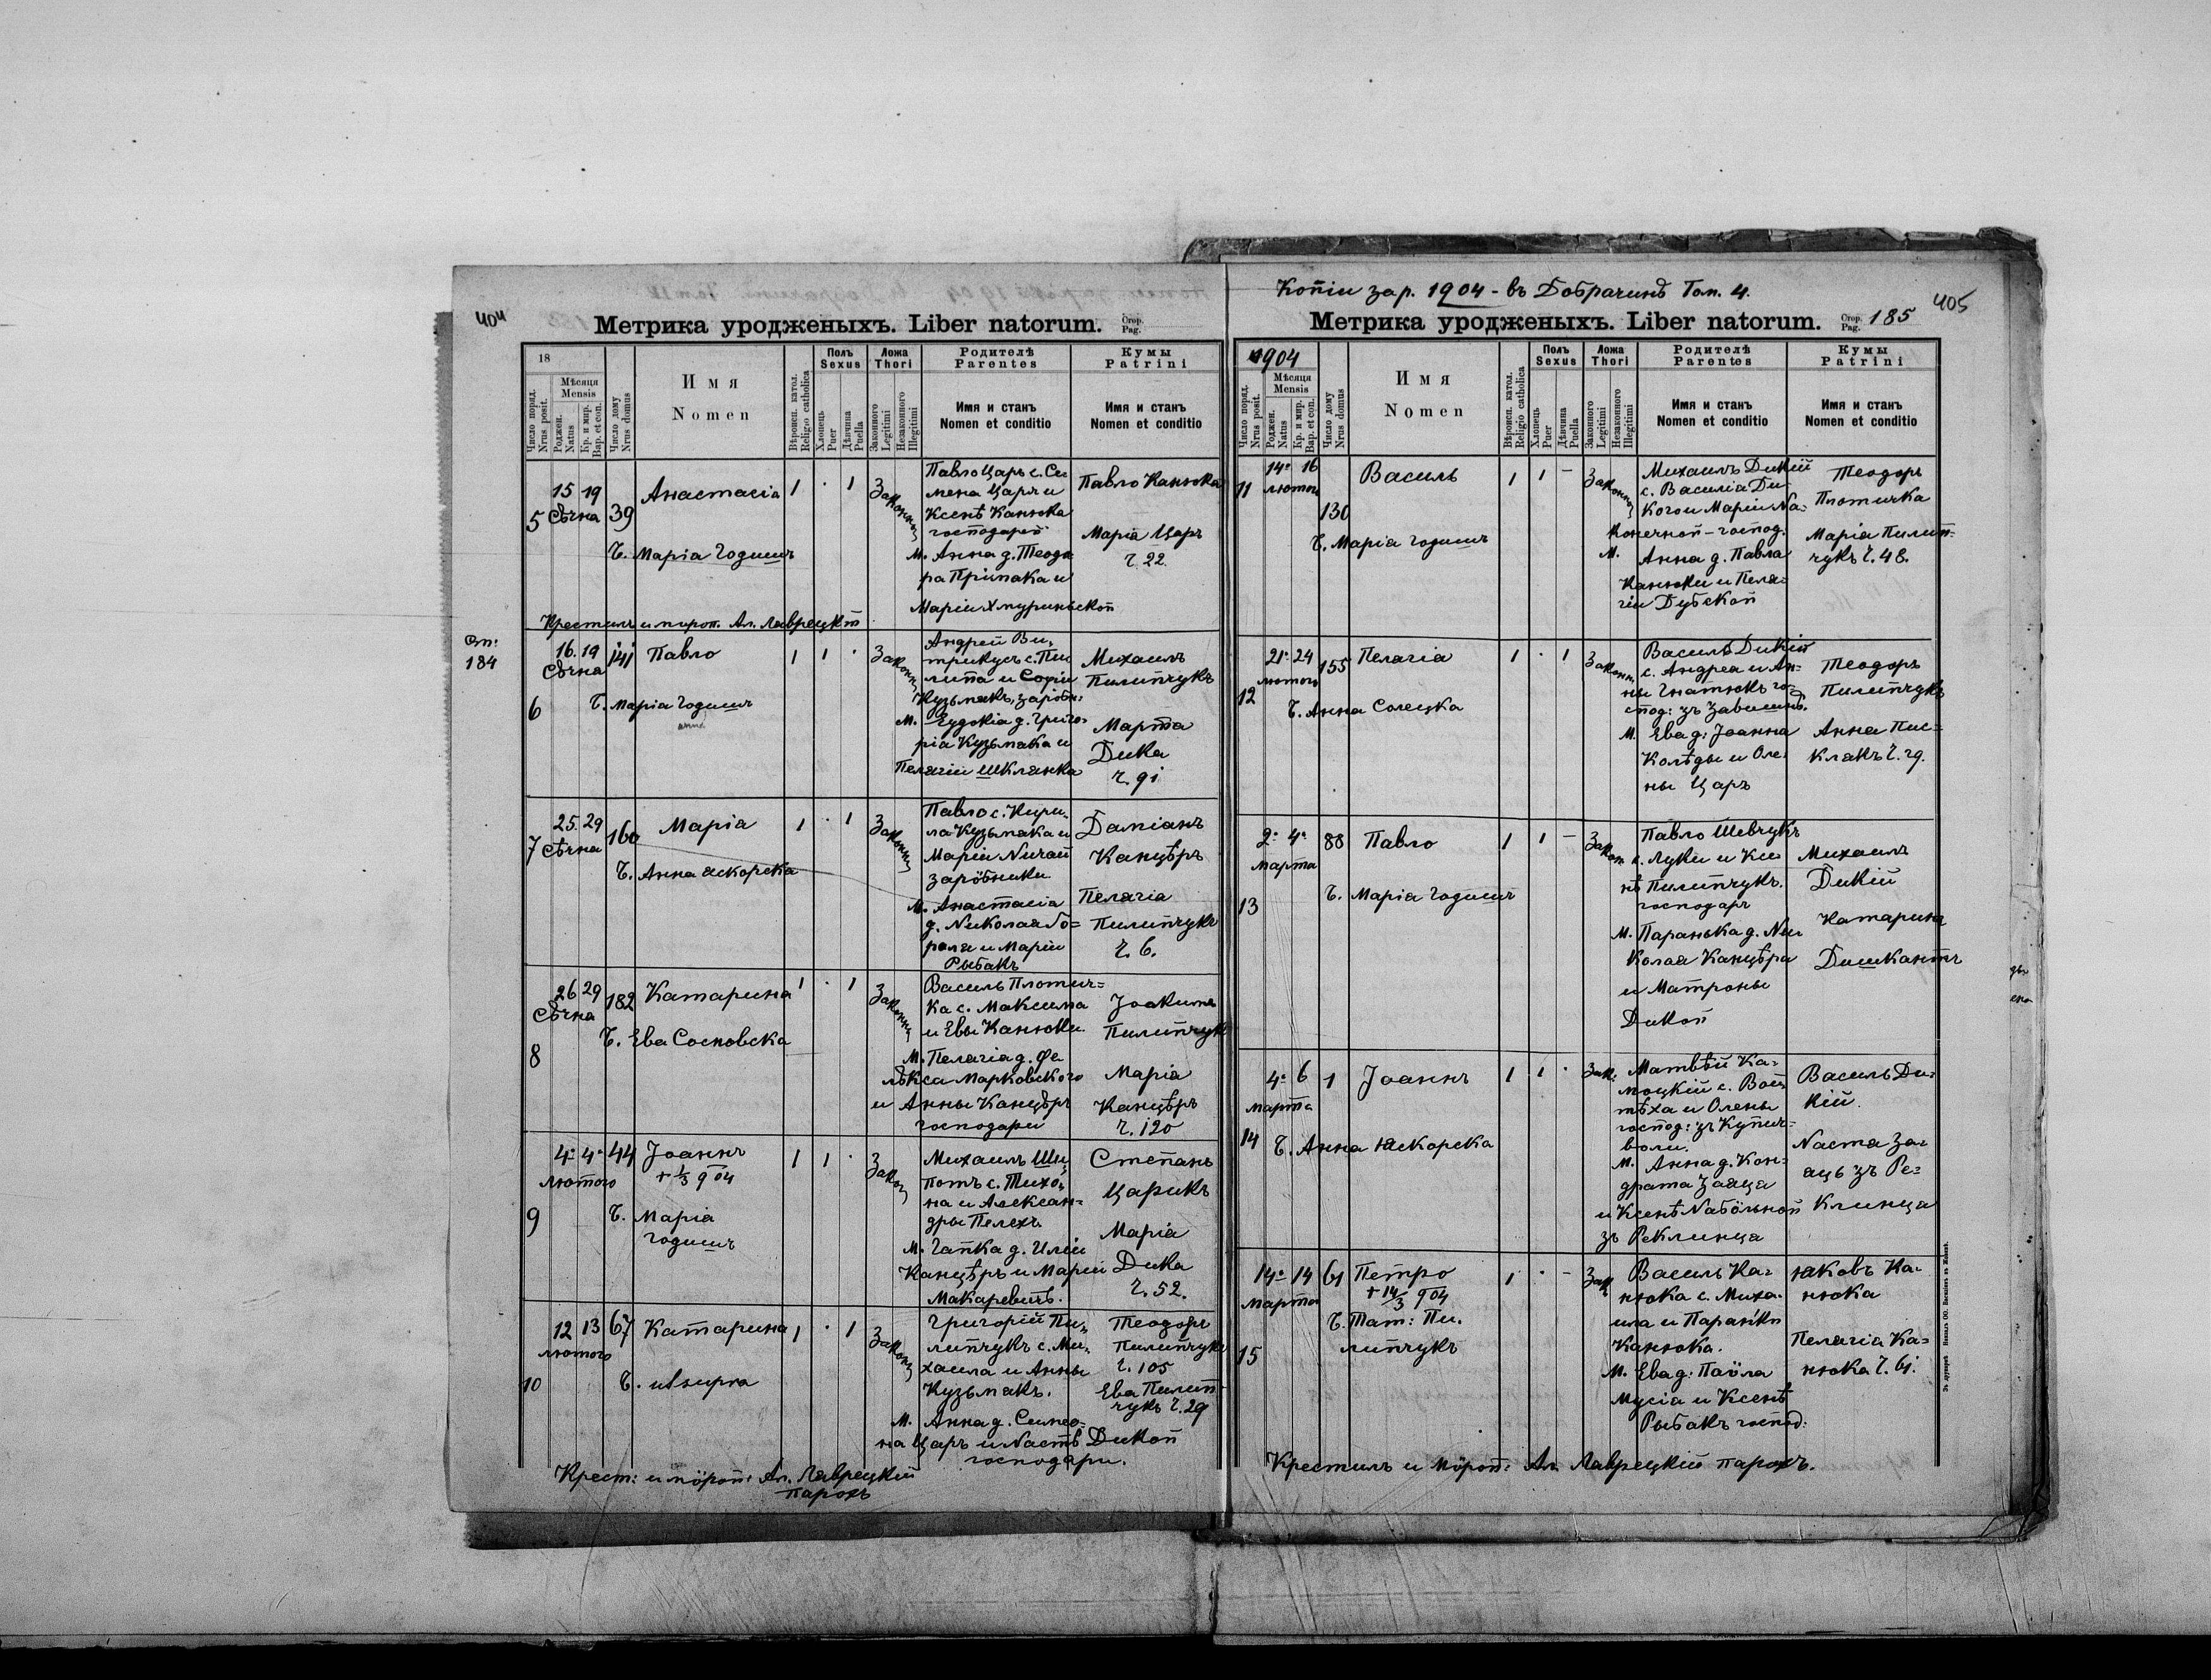 404
Метрика уродженыхъ. Liber natorum. Стор. Pag.
18
Число поряд. Nrus posit.
Мѣсяця Mensis
Роджен. Natus
Кр. и мир. Bap. et con.
Число дому Nrus domus
Имя Nomen
Вѣроисп. катол. Religio catholica
Полъ Sexus
Хлопець Puer
Дѣвчина Puella
Ложа Thori
Законного Legitimi
Незаконного Illegitimi
Родителѣ Parentes
Имя и станъ Nomen et conditio
Кумы Patrini
Имя и станъ Nomen et conditio
5
15 19
Сѣчня
39
Анастасіа
Б. Маріа Годишъ
1 · 1
Законни
Павло Царь с. Се-
мена Царя и
Ксенѣ Канюка
господарѣ
М. Анна д. Теодо
ра Прімака и
Маріи Хмуриньскои
Павло Канюка
Маріа Царь
ч. 22.
Крестилъ и мироп. Ал. Лаврецкій
Ст:
184
6
16. 19
Сѣчня
141
Павло
Б. Маріа Годишъ
1 1 ·
Законн
Андрей Ви-
трикусъ с. Пи
липа и Софіи
Кузьмакъ, зарôбн:
М. Еудокіа д. Григо-
ріа Кузьмака и
Пелагіи Шклянка
Михаилъ
Пилипчукъ
Марта
Дика
ч. 91
7
25. 29
Сѣчня
160
Маріа
Б. Анна Яскорска
1 · 1
Законни
Павло с. Кири-
ла Кузьмака и
Маріи Ничай
зарôбники
М. Анастасіа
д. Николая Го=
раля и Маріи
Рыбакъ
Даміанъ
Канцѣръ
Пелагіа
Пилипчукъ
ч. 6.
8
26 29
Сѣчня
182
Катарина
Б. Ева Сосновска
1 · 1
Законни
Василь Плотич=
ка с. Максима
и Евы Канюки.
М. Пелагіа д. Фе
лѣкса Марковского
и Анны Канцѣръ
господари
Јоакимъ
Пилипчукъ
Маріа
Канцѣръ
ч. 120
9
4. 4.
Лютого
44
Јоаннъ
+ 1/3 904
Б. Маріа
Годишъ
1 1 ·
Закон
Михаилъ Ши
потъ с. Тихо
на и Алексан-
дры Пелехъ
М. Гапка д. Иліи
Канцѣръ и Маріи
Макаревичъ.
Степанъ
Царикъ
Маріа
Дика
ч. 52.
10
12 13
лютого
67
Катарина
Б. ut supra
1 · 1
Законн
Григорій Пи-
липчукъ с. Ми-
хаила и Анны
Кузьмакъ.
М. Анна д. Симео-
на Царь и Настѣ Дикои
господари.
Теодоръ
Пилипчукъ
ч. 105
Ева Пилип-
чукъ ч. 29
Крест: и мѵроп: Ал. Лаврецкій
парохъ
Копіи зар. 1904 - въ Добрачинѣ Том. 4.
405
Метрика уродженыхъ. Liber natorum. Стор. Pag. 185
1904
Число поряд. Nrus posit.
Мѣсяця Mensis
Роджен. Natus
Кр. и мир. Bap. et con.
Число дому Nrus domus
Имя Nomen
Вѣроисп. катол. Religio catholica
Полъ Sexus
Хлопець Puer
Дѣвчина Puella
Ложа Thori
Законного Legitimi
Незаконного Illegitimi
Родителѣ Parentes
Имя и станъ Nomen et conditio
Кумы Patrini
Имя и станъ Nomen et conditio
11
14. 16
лютого
130
Василь
Б. Маріа Годишъ
1 1 –
Законни
Михаилъ Дикій
с. Василіа Ди-
кого и Маріи На-
конечной - господ.
М. Анна д. Павла
Канюки и Пела-
гіи Дубской
Теодоръ
Плотичка
Маріа Пилип=
чукъ ч. 48.
12
21. 24
лютого
155
Пелагіа
Б. Анна Солецка
1 · 1
Законн
Василь Дикій
с. Андреа и Ан-
ны Гнатюкъ го-
спод: зъ Завишнѣ.
М. Ева д. Јоанна
Колѣды и Оле-
ны Царъ
Теодоръ
Пилипчукъ
Анна Пис-
клакъ ч. 29.
13
2. 4.
Марта
88
Павло
Б. Маріа Годишъ
1 1 –
Законн
Павло Шевчукъ
с. Луки и Ксе
нѣ Пилипчукъ.
господаръ
М. Паранька д. Ни-
колая Канцѣра
и Матроны
Дикой
Михаилъ
Дикій
Катарина
Дишкантъ
14
4. 6
Марта
1
Јоаннъ
Б. Анна Яскорска
1 1 ·
Зак:
Матвѣй Ка-
моцкій с. Вой
тѣха и Олены
господ: зъ Купич-
воли.
М. Анна д. Кон-
драта Заяца
и Ксенѣ Набôльной
зъ Реклинца
Василь Ди-
кій.
Наста За-
яцъ зъ Ре-
клинца
15
14. 14
Марта
61
Петро
+ 14/3 904
Б. Тат: Пи-
липчукъ
1 · –
Зак
Василь Ка-
нюка с. Миха-
ила и Параньки
Канюка.
М. Ева д. Павла
Мусіа и Ксенѣ
Рыбакъ господ:
Яковъ Ка-
нюка
Пелагіа Ка-
нюка ч. 61.
Крестилъ и мѵроп: Ал. Лаврецкій парохъ.